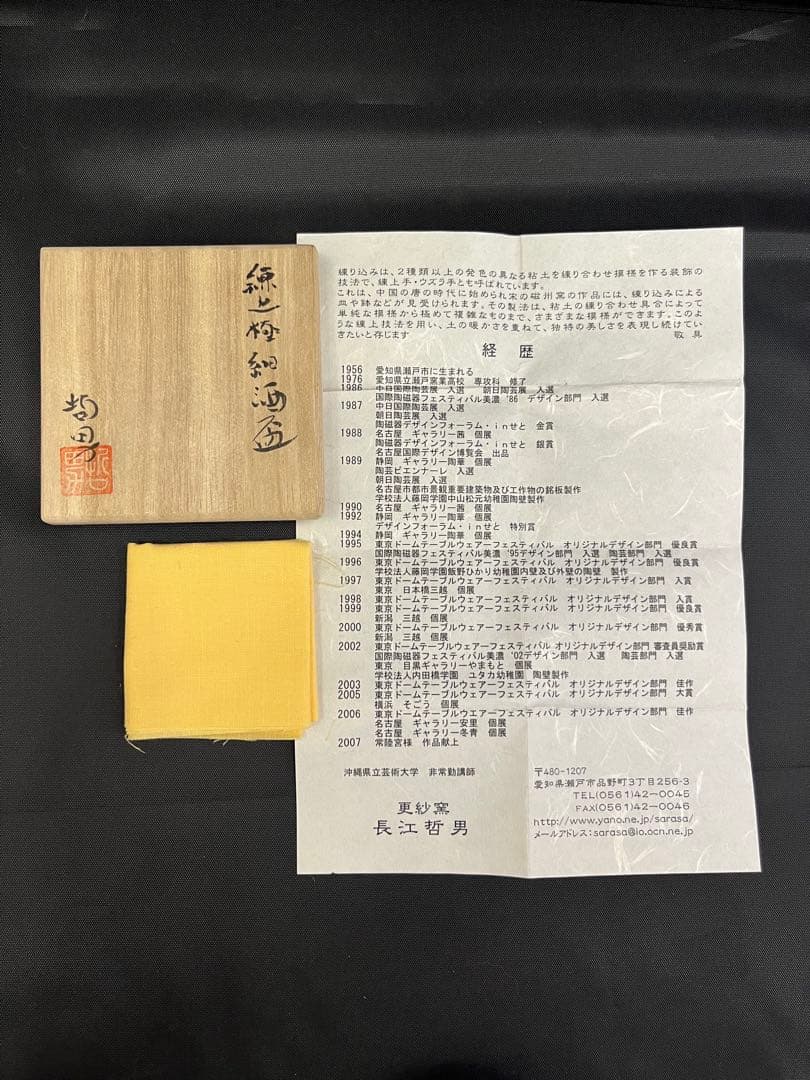 練上極細酒盃
哲男
哲男
練り込みは、2種類以上の発色の異なる粘土を練り合わせ模様を作る装飾の
技法で、練上手・ウズラ手とも呼ばれています。
これは、中国の唐の時代に始められ宋の磁州窯の作品には、練り込みによる
皿や鉢などが見受けられます。その製法は、粘土の練り合わせ具合によって
単純な模様から極めて複雑なものまで、さまざまな模様ができます。このよ
うな練上技法を用い、土の暖かさを重ねて、独特の美しさを表現し続けてい
きたいと存じます 敬具
経歴
1956 愛知県瀬戸市に生まれる
1976 愛知県立瀬戸窯業高校 専攻科 修了
1986 中日国際陶芸展 入選 朝日陶芸展 入選
国際陶磁器フェスティバル美濃'86 デザイン部門 入選
1987 中日国際陶芸展 入選
朝日陶芸展 入選
陶磁器デザインフォーラム・inせと 金賞
1988 名古屋 ギャラリー茜 個展
陶磁器デザインフォーラム・inせと 銀賞
名古屋国際デザイン博覧会 出品
1989 静岡 ギャラリー陶華 個展
陶芸ビエンナーレ 入選
朝日陶芸展 入選
名古屋市都市景観重要建築物及び工作物の銘板製作
学校法人藤岡学園中山松元幼稚園陶壁製作
1990 名古屋 ギャラリー茜 個展
1992 静岡 ギャラリー陶華 個展
デザインフォーラム・inせと 特別賞
1994 静岡 ギャラリー陶華 個展
1995 東京ドームテーブルウェアーフェスティバル オリジナルデザイン部門 優良賞
国際陶磁器フェスティバル美濃'95デザイン部門 入選 陶芸部門 入選
1996 東京ドームテーブルウェアーフェスティバル オリジナルデザイン部門 優良賞
学校法人藤岡学園飯野ひかり幼稚園内壁及び外壁の陶壁 製作
1997 東京ドームテーブルウェアーフェスティバル オリジナルデザイン部門 入賞
東京 日本橋三越 個展
1998 東京ドームテーブルウェアーフェスティバル オリジナルデザイン部門 入賞
1999 東京ドームテーブルウェアーフェスティバル オリジナルデザイン部門 優良賞
新潟 三越 個展
2000 東京ドームテーブルウェアーフェスティバル オリジナルデザイン部門 優秀賞
新潟 三越 個展
2002 東京ドームテーブルウェアーフェスティバル オリジナルデザイン部門 審査員奨励賞
国際陶磁器フェスティバル美濃'02デザイン部門 入選 陶芸部門 入選
東京 目黒ギャラリーやまもと 個展
学校法人内田橋学園 ユタカ幼稚園 陶壁製作
2003 東京ドームテーブルウェアーフェスティバル オリジナルデザイン部門 佳作
2005 東京ドームテーブルウェアーフェスティバル オリジナルデザイン部門 大賞
横浜 そごう 個展
2006 東京ドームテーブルウエアーフェスティバル オリジナルデザイン部門 佳作
名古屋 ギャラリー安里 個展
名古屋 ギャラリー冬青 個展
2007 常陸宮様 作品献上
沖縄県立芸術大学 非常勤講師
更紗窯
長江哲男
〒480-1207
愛知県瀬戸市品野町3丁目256-3
TEL(0561)42-0045
FAX(0561)42-0046
http://www.yano.ne.jp/sarasa/
メールアドレス:sarasa@io.ocn.ne.jp